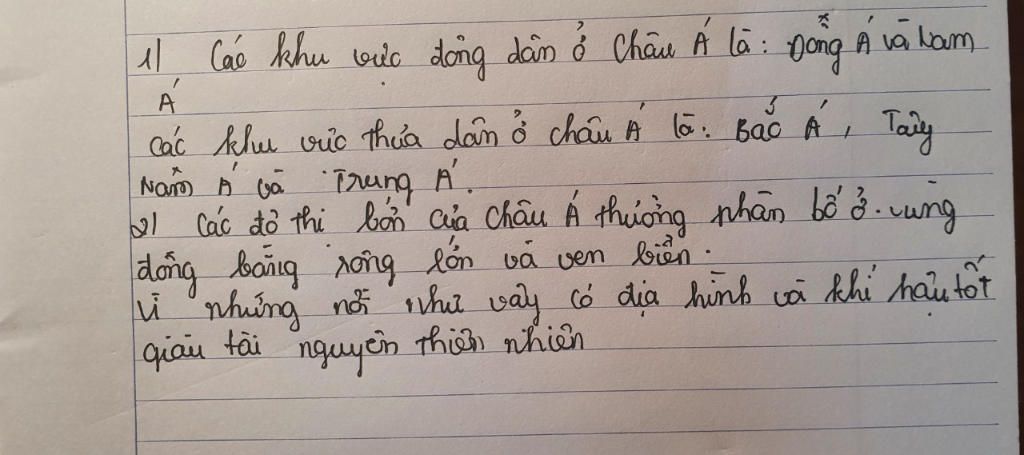 1) Các khu vực đông dân ở Châu Á là: Đông Á và Nam
Á
Các khu vực thưa dân ở châu Á là: Bắc Á, Tây
Nam Á và Trung Á.
2) Các đô thị lớn của Châu Á thường phân bố ở vùng
đồng bằng rộng lớn và ven biển.
Vì những nơi như vậy có địa hình và khí hậu tốt
giàu tài nguyên thiên nhiên